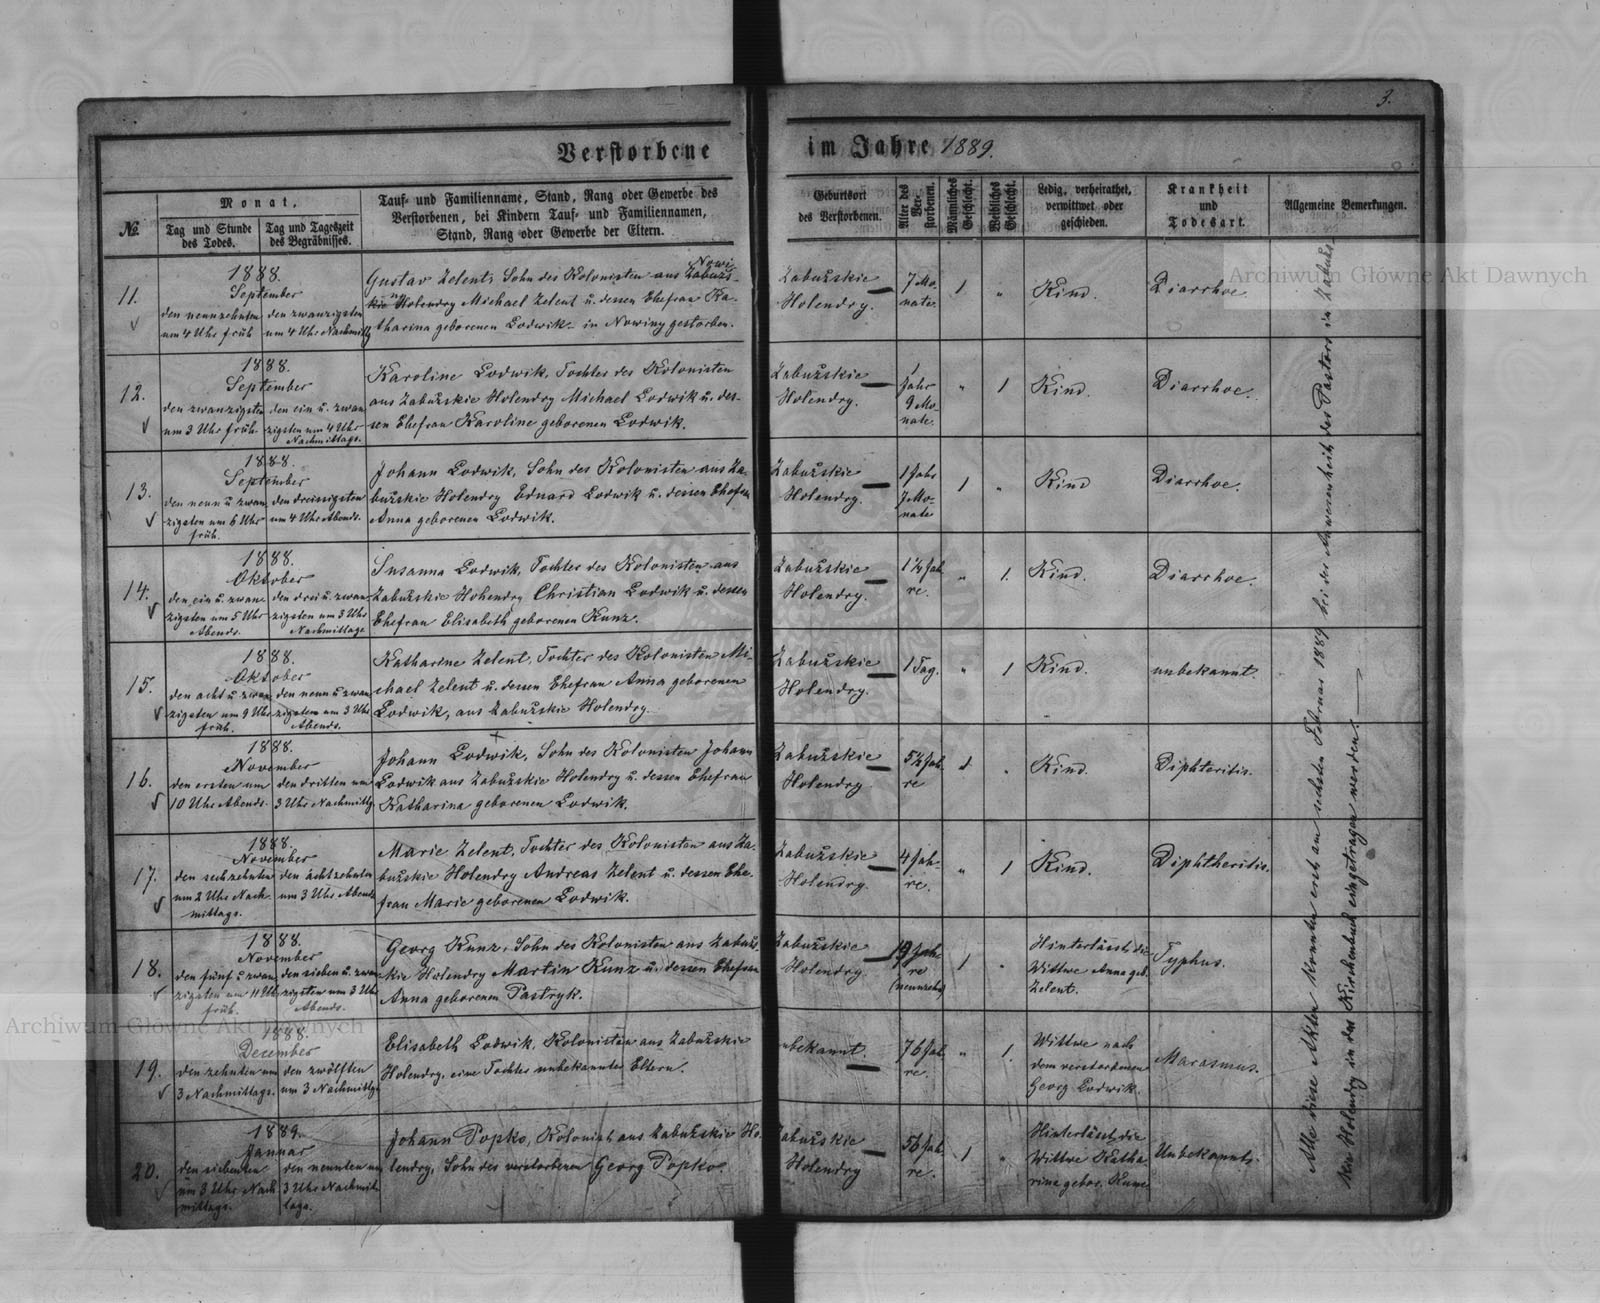 3.
Verstorbene im Jahre 1889.
№
Monat.
Tag und Stunde des Todes.
Tag und Tageszeit des Begräbnisses.
Tauf- und Familienname, Stand, Rang oder Gewerbe des
Verstorbenen, bei Kindern Tauf- und Familiennamen,
Stand, Rang oder Gewerbe der Eltern.
Geburtsort
des Verstorbenen.
Alter des Ver-
storbenen.
Männliches
Geschlecht.
Weibliches
Geschlecht.
Ledig, verheirathet,
verwittwet oder
geschieden.
Krankheit
und
Todesart.
Allgemeine Bemerkungen.
11.
1888.
September
den neunzehnten
um 4 Uhr früh
den zwanzigsten
um 4 Uhr Nachmittg
Nowi
Gustav Zelent, Sohn des Kolonisten aus Zabuzs-
kie Holendry Michael Zelent u. dessen Ehefrau Ka-
tharina geborenen Lodwik in Nowiny gestorben.
Zabužskie
Holendry.
7 Mo-
nate.
1
"
Kind.
Diarrhoe
12.
1888.
September
den zwanzigsten
um 3 Uhr früh
den ein u. zwan
zigsten um 4 Uhr
Nachmittags.
Karoline Lodwik, Tochter des Kolonisten
aus Zabužskie Holendry Michael Lodwik u. des-
sen Ehefrau Karoline geborenen Lodwik.
Zabužskie
Holendry.
1
Jahr
9 Mo-
nate.
"
1
Kind.
Diarrhoe.
13.
1888.
September
den neun u zwan
zigsten um 6 Uhr
früh.
den dreissigsten
um 4 Uhr Abends.
Johann Lodwik, Sohn des Kolonisten aus Za-
bužskie Holendry Eduard Lodwik u. dessen Ehefrau
Anna geborenen Lodwik.
Zabužskie
Holendry.
1 Jahr
7 Mo-
nate
1
"
Kind
Diarrhoe.
14.
1888.
Oktober
den ein u. zwan-
zigsten um 5 Uhr
Abends.
den drei u. zwan-
zigsten um 3 Uhr
Nachmittags
Susanna Lodwik, Tochter des Kolonisten aus
Zabužskie Hohendry Christian Lodwik u. dessen
Ehefrau Elisabeth geborenen Kunz.
Zabužskie
Holendry.
1½ Jah
re.
"
1.
Kind.
Diarrhoe.
15.
1888.
Oktober
den acht u zwan
zigsten um 9 Uhr
früh.
den neun u zwan
zigsten um 3 Uhr
Abends.
Katharine Zelent, Tochter des Kolonisten Mi-
chael Zelent u. dessen Ehefrau Anna geborenen
Lodwik, aus Zabužskie Holendry.
Zabužskie
Holendry.
1 Tag.
"
1
Kind.
unbekannt.
16.
1888.
November
den ersten um
10 Uhr Abends.
den dritten um
3 Uhr Nachmittg.
Johann Lodwik, Sohn des Kolonisten Johann
Lodwik aus Zabužskie Holendry u. dessen Ehefrau
Katharina geborenen Lodwik.
Zabužskie
Holendry
5½ Jah
re
1
"
Kind.
Diphteritis.
17.
1888.
November
den sechzehnten
um 2 Uhr Nach-
mittags.
den achtzehnten
um 3 Uhr Abends
Marie Zelent, Tochter des Kolonisten aus Za-
bužskie Holendry Andreas Zelent u. dessen Ehe-
frau Marie geborenen Lodwik.
Zabužskie
Holendry.
4 Jah-
re.
"
1
Kind.
Diphtheritis.
18.
1888.
November
den fünf u zwan
zigsten um 11 Uhr
früh.
den sieben u. zwan
zigsten um 3 Uhr
Abends.
Georg Kunz, Sohn des Kolonisten aus Zabužs-
kie Holendry Martin Kunz u. dessen Ehefrau
Anna geborenen Pastryk.
Zabužskie
Holendry.
19 Jah-
re
(neunzehn)
1
"
Hinterlässt die
Wittwe Anna geb.
Zelent.
Typhus.
19.
1888.
December
den zehnten um
3 Nachmittags.
den zwölften
um 3 Nachmittgs
Elisabeth Lodwik, Kolonistin aus Zabužskie
Holendry, eine Tochter unbekannter Eltern.
unbekannt.
76 Jah
re.
"
1.
Wittwe nach
dem verstorbenen
Georg Lodwik.
Marasmus.
20.
1889.
Januar
den siebenten
um 3 Uhr Nach
mittags.
den neunten um
3 Uhr Nachmit-
tags.
Johann Popko, Kolonist aus Zabužskie Ho-
lendry, Sohn des verstorbenen Georg Popko.
Zabužskie
Holendry
56 Jah
re.
1
"
Hinterlässt die
Wittwe Katha
rina gebor. Kunz
Unbekannt.
Alle diese Akten konnten erst am sechsten Februar 1889 bei der Anwesenheit des Pastors in Zabužs-
kie Holendry in das Kirchenbuch eingetragen werden.
Archiwum Główne Akt Dawnych
Archiwum Główne Akt Dawnych